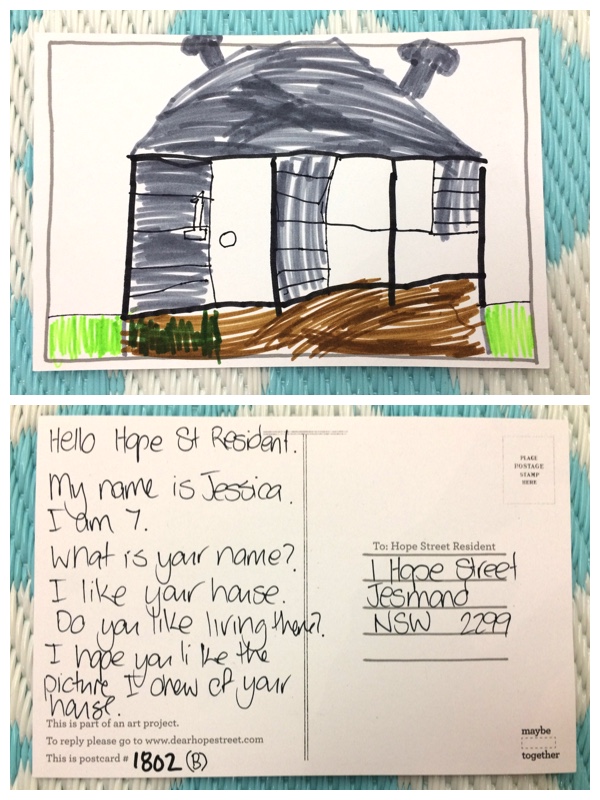 Hello Hope St Resident.
My name is Jessica.
I am 7.
What is your name?
I like your house.
Do you like living there?.
I hope you like the
picture I drew of your
house.
This is part of an art project.
To reply please go to www.dearhopestreet.com
This is postcard # 1802 (B)
PLACE
POSTAGE
STAMP
HERE
To: Hope Street Resident
1 Hope Street
Jesmond
NSW 2299
maybe
together